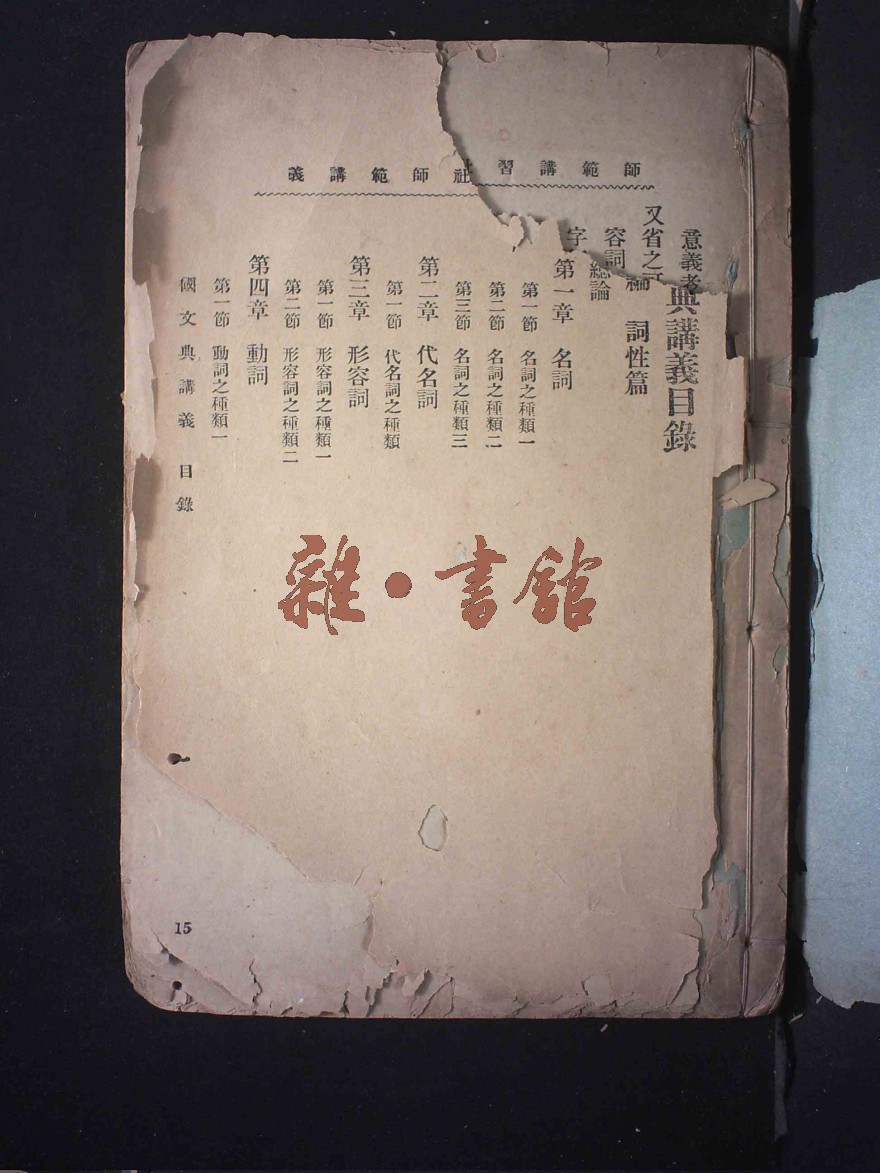 師範講習社師範講義
意義者典講義目錄
又省之
編 詞性篇
容詞 總論
字
第一章 名詞
第一節 名詞之種類一
第二節 名詞之種類二
第三節 名詞之種類三
第二章 代名詞
第一節 代名詞之種類
第三章 形容詞
第一節 形容詞之種類一
第二節 形容詞之種類二
第四章 動詞
第一節 動詞之種類一
國文典講義 目錄
15
雜·書館